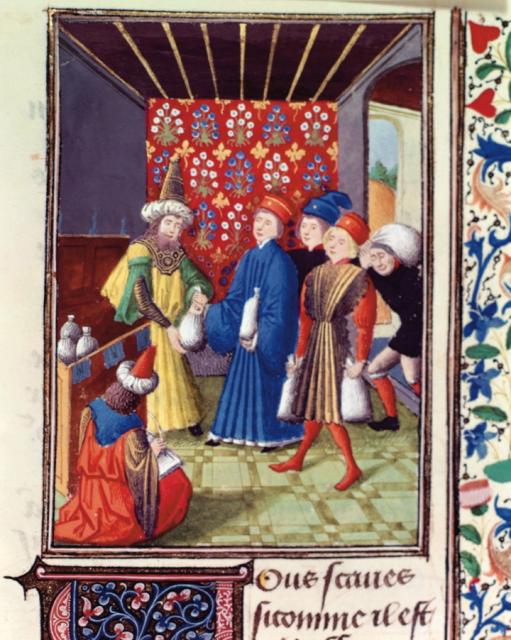 Ous scaues
sicomme il est